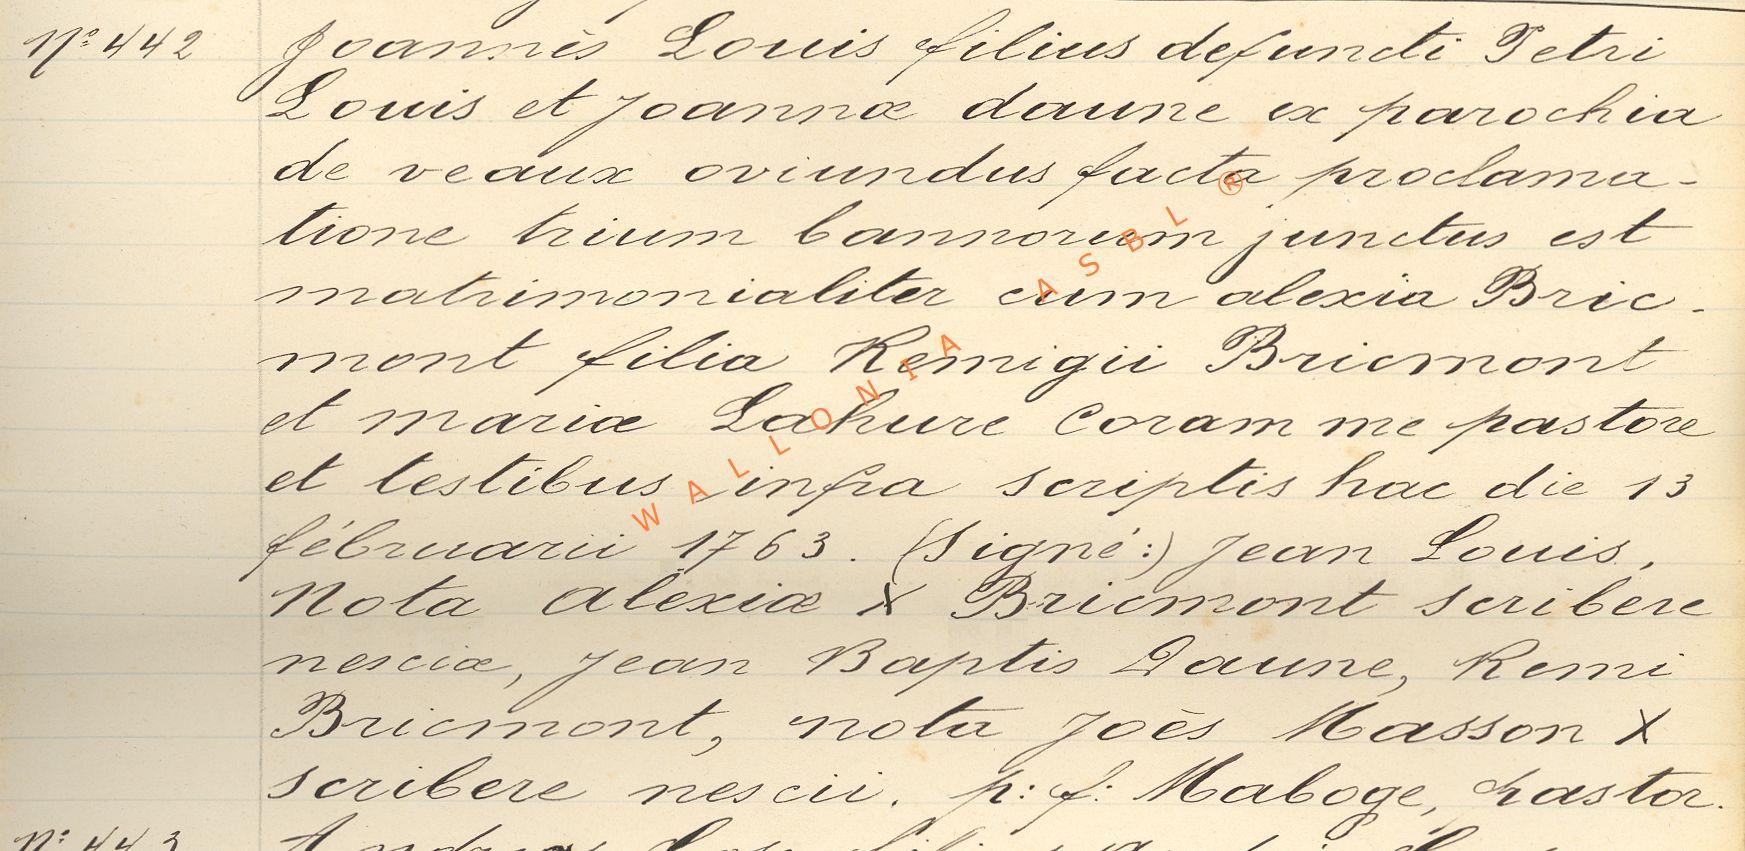 Nº 442 Joannès Louis filius defuncti Petri
Louis et Joannæ daune ex parochia
de veaux oviundus facta proclama-
tione trium bannorum junctus est
matrimonialiter cum alexia Bric-
mont filia Remigii Bricmont
et mariæ Lahure coram me pastore
et testibus infra scriptis hac die 13
fébruarii 1763. (Signé:) Jean Louis,
Nota alexiæ X Bricmont scribere
nesciæ, Jean Baptis Daune, Remi
Bricmont, nota Joês Masson X
scribere nescii. p: f: Maboge, pastor.
Nº 443
WALLONIA ASBL ®